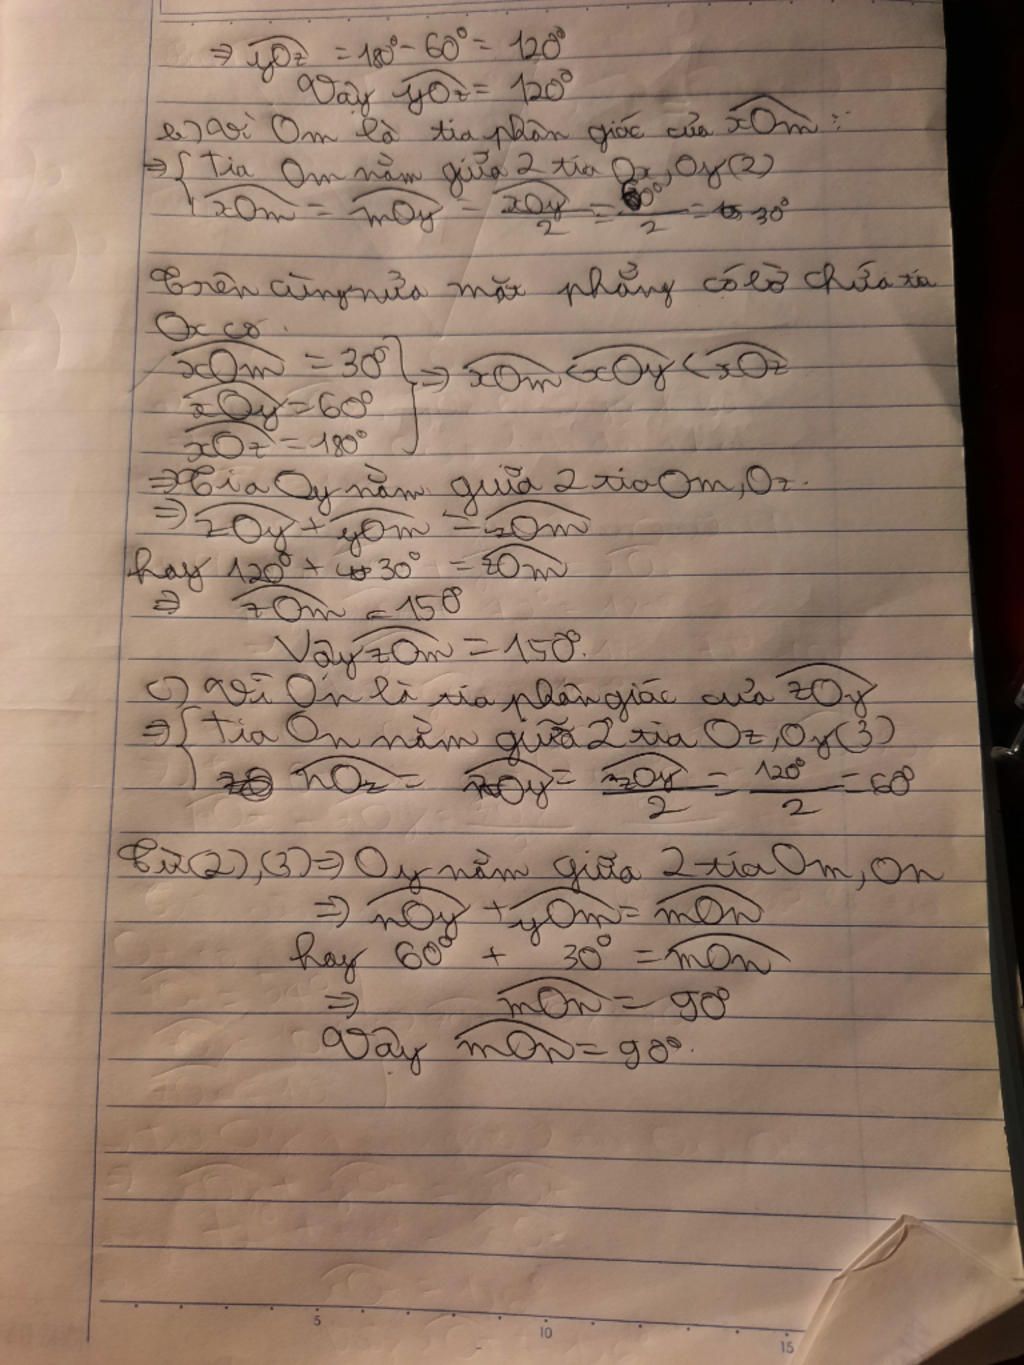 ⇒ yOz = 180° - 60° = 120°
Vậy yOz = 120°
b) Vì Om là tia phân giác của xOm :
⇒ { Tia Om nằm giữa 2 tia Ox, Oy (2)
xOm = mOy = xOy/2 = 60°/2 = 30°
Trên cùng nửa mặt phẳng có bờ chứa tia
Ox có
xOm = 30°
xOy = 60° } ⇒ xOm < xOy < xOz
xOz = 180°
⇒ Tia Oy nằm giữa 2 tia Om, Oz.
⇒ zOy + yOm = zOm
hay 120° + 30° = zOm
⇒ zOm = 150°
Vậy zOm = 150°.
c) Vì On là tia phân giác của zOy
⇒ { Tia On nằm giữa 2 tia Oz, Oy (3)
nOz = nOy = zOy/2 = 120°/2 = 60°
Từ (2), (3) ⇒ Oy nằm giữa 2 tia Om, On
⇒ nOy + yOm = mOn
hay 60° + 30° = mOn
⇒ mOn = 90°
Vậy mOn = 90°.
5 10 15